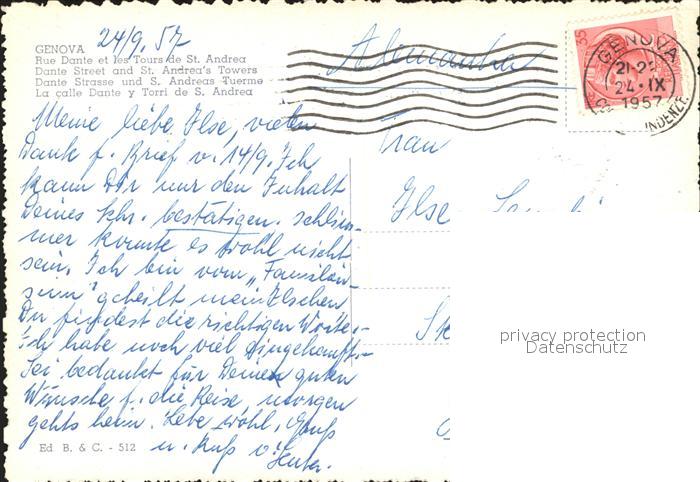 GENOVA 24/9.57
Rue Dante et les Tours de St. Andrea
Dante Street and St. Andrea's Towers
Dante Strasse und S. Andreas Tuerme
La calle Dante y Torri de S. Andrea
Meine liebe Ilse, vielen
Dank f. Brief v. 14/9. Ich
kann Dir nur den Inhalt
Deines Schr. bestätigen. Schlim-
mer konnte es wohl nicht
sein. Ich bin vom „Familien-
sinn" geheilt mein Ilschen.
Du findest die richtigen Worte.-
Ich habe noch viel
Sei bedankt für Deine guten
Wünsche f. die Reise, morgen
gehts heim. Lebe wohl, Gruß
u. Kuß v.
Ed B. & C. - 512
Alemanha
35
GENOVA
21-22
24·IX
1957
Frau
Ilse
privacy protection
Datenschutz